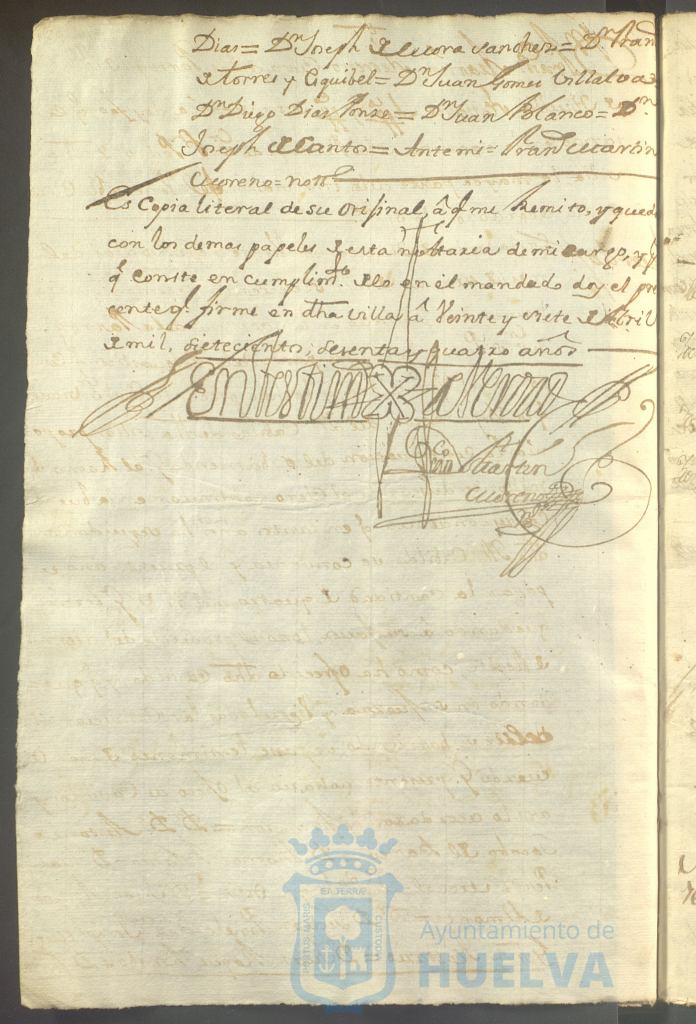 Dias= Dn Joseph de Mora Sanchez= Dn Fran
de Torres y Eguibel= Dn Juan Gomez Villalva=
Dn Diego Dias Ponze= Dn Juan Blanco= Dn
Joseph de Santos= Antemi= Frano Martin
Moreno=notto
Es Copia literal de su Orijinal, â q me Remito, y queda
con los demas papeles de esta nottaria de mi cargo, y p
q conste en cumplimto. de lo en el mandado doy el pre
cente q. firme en dha villa â Veinte y siete de Abril
de mil, setecientos, sesenta y quatro años
En testimo de Verdad
Fco Martin
Moreno
EA TERRAE
PORTUS MARIS
CUSTODIA
Ayuntamiento de
HUELVA